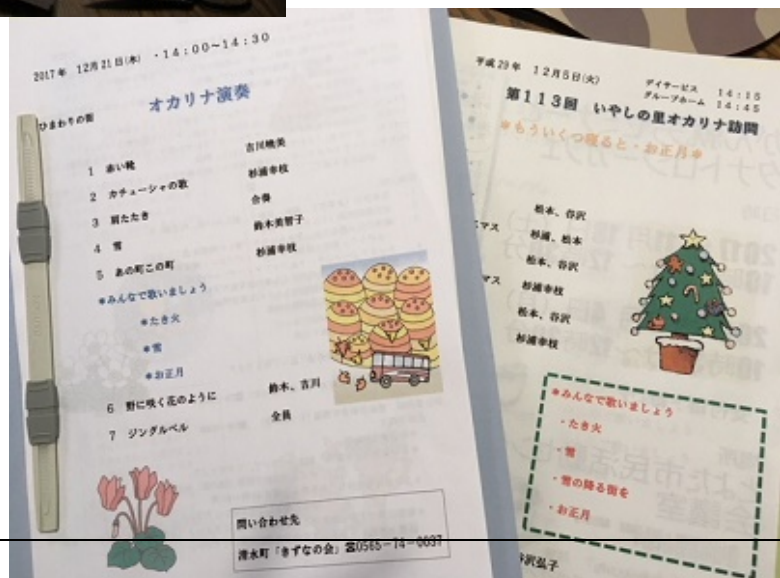 2017年 12月21日(木) ・14:00~14:30
オカリナ演奏
ひまわりの街
1 赤い靴 吉川暁美
2 カチューシャの歌 杉浦幸枝
3 肩たたき 合奏
4 雪 鈴木美智子
5 あの町この町 杉浦幸枝
*みんなで歌いましょう
*たき火
*雪
*お正月
6 野に咲く花のように 鈴木、吉川
7 ジングルベル 全員
問い合わせ先
清水町「きずなの会」☎0565-74-0037
平成29年 12月5日(火)
デイサービス 14:15
グループホーム 14:45
第113回 いやしの里オカリナ訪問
*もういくつ寝ると・お正月*
松本、谷沢
マス 杉浦、松本
松本、谷沢
マス 杉浦幸枝
松本、谷沢
杉浦幸枝
*みんなで歌いましょう
・たき火
・雪
・雪の降る街を
・お正月
谷沢弘子